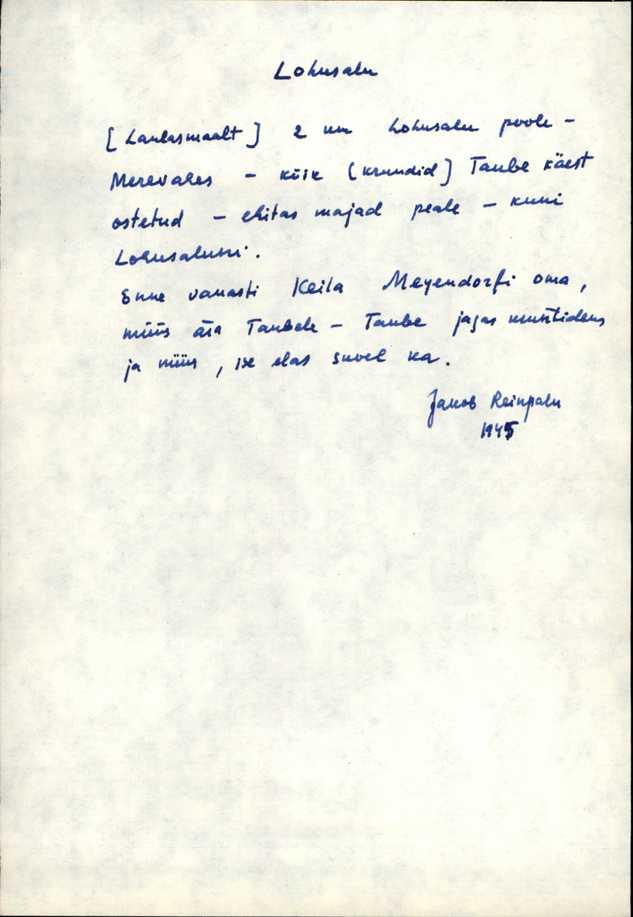 Lohusalu
[Laulasmaalt] 2 km Lohusalu poole –
Merevahes – kõik [krundid] Taube käest
ostetud – ehitas majad peale – kuni
Lohusaluni.
Enne vanasti Keila Meyendorfi oma,
müüs ära Taubele – Taube jagas kruntideks
ja müüs, ise elas suvel ka.
Jakob Reinpalu
1945